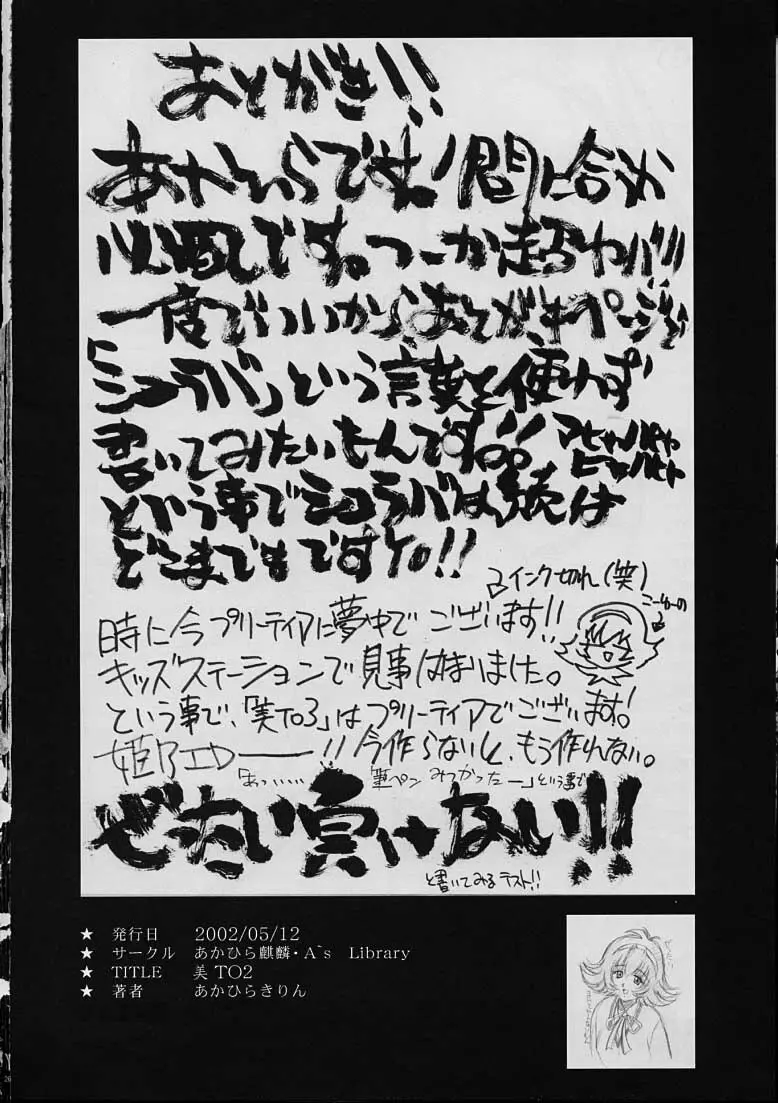 あとがき!!
あかひらです。!間に合うか
心配です。つーか超ヤバ!!
一度でいいからあとがきページで
「シュラバ」という言葉を使わず
書いてみたいもんです!!アヒャハヒャ
ヒャハヒャ
という事でシュラバは続は
どこまでもですYo!!
インク切れ(笑)
こーゆーの
時に今プリーティアに夢中でございます!!
キッズステーションで見事はまりました。
という事で、「美TO3」はプリーティアでございます!
姫ちゃー!!今作らないと、もう作れない。
「あっ……筆ペンみつかったー」という事で
ぜったい負けない!!
と書いてみるテスト!!
★ 発行日 2002/05/12
★ サークル あかひら麒麟・A`s Library
★ TITLE 美 TO2
★ 著者 あかひらきりん
26